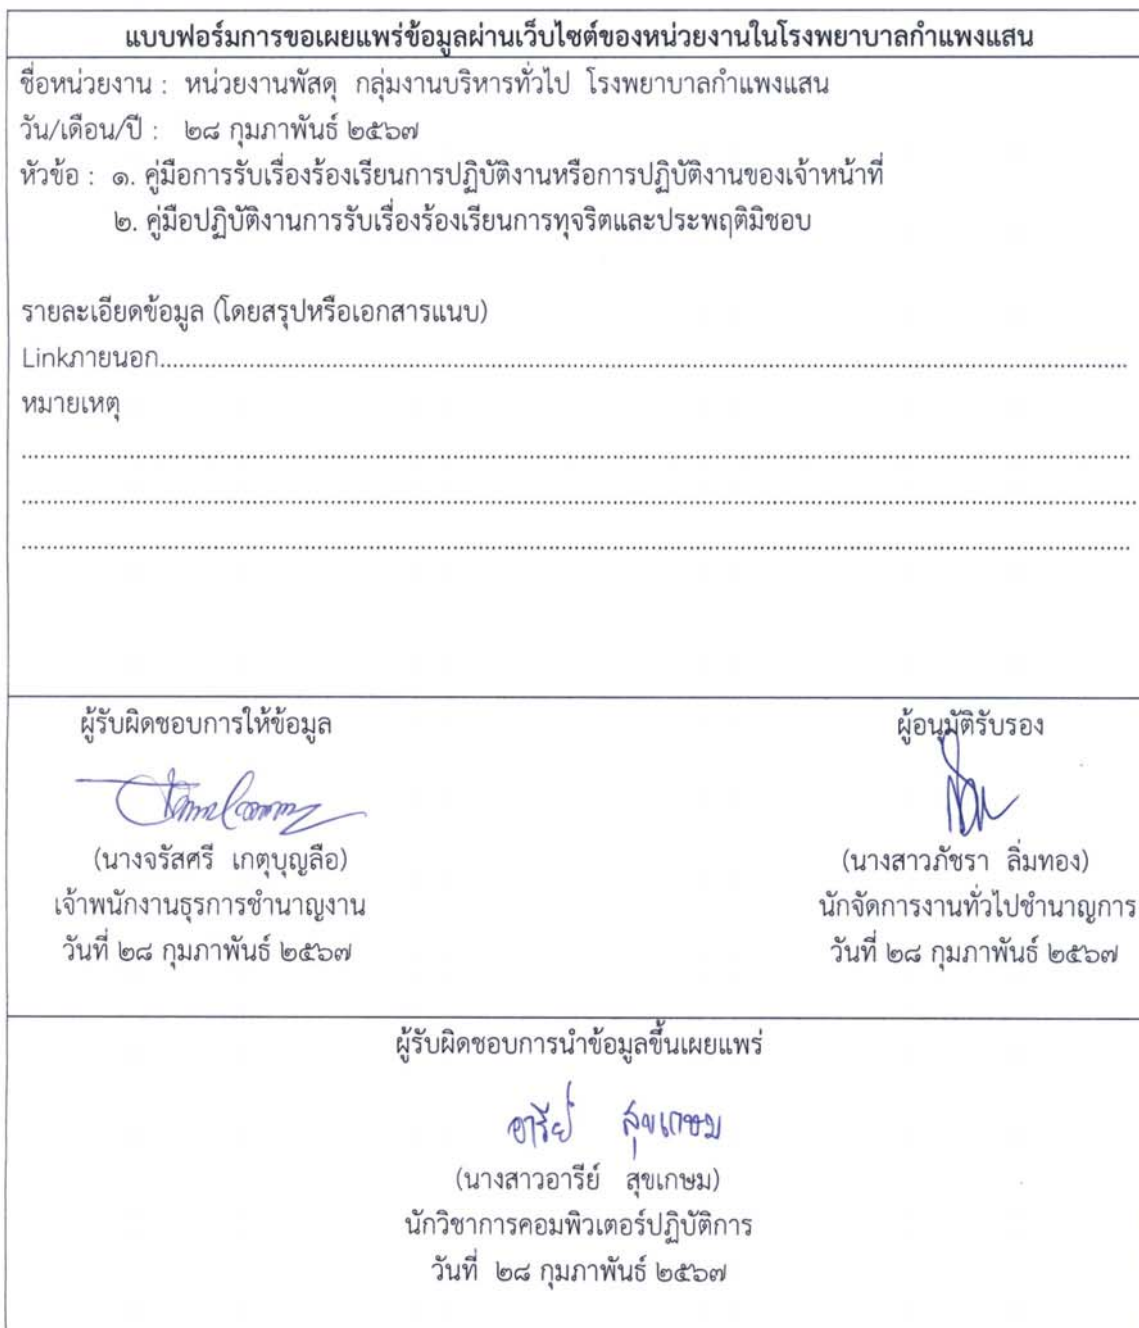 แบบฟอร์มการขอเผยแพร่ข้อมูลผ่านเว็บไซต์ของหน่วยงานในโรงพยาบาลกำแพงแสน
ชื่อหน่วยงาน : หน่วยงานพัสดุ กลุ่มงานบริหารทั่วไป โรงพยาบาลกำแพงแสน
วัน/เดือน/ปี : ๒๘ กุมภาพันธ์ ๒๕๖๗
หัวข้อ : ๑. คู่มือการรับเรื่องร้องเรียนการปฏิบัติงานหรือการปฏิบัติงานของเจ้าหน้าที่
๒. คู่มือปฏิบัติงานการรับเรื่องร้องเรียนการทุจริตและประพฤติมิชอบ
รายละเอียดข้อมูล (โดยสรุปหรือเอกสารแนบ)
Linkภายนอก....................................................................................................
หมายเหตุ
....................................................................................................
....................................................................................................
....................................................................................................
ผู้รับผิดชอบการให้ข้อมูล
(นางจรัสศรี เกตุบุญลือ)
เจ้าพนักงานธุรการชำนาญงาน
วันที่ ๒๘ กุมภาพันธ์ ๒๕๖๗
ผู้อนุมัติรับรอง
(นางสาวภัชรา ลิ่มทอง)
นักจัดการงานทั่วไปชำนาญการ
วันที่ ๒๘ กุมภาพันธ์ ๒๕๖๗
ผู้รับผิดชอบการนำข้อมูลขึ้นเผยแพร่
อารีย์ สุขเกษม
(นางสาวอารีย์ สุขเกษม)
นักวิชาการคอมพิวเตอร์ปฏิบัติการ
วันที่ ๒๘ กุมภาพันธ์ ๒๕๖๗